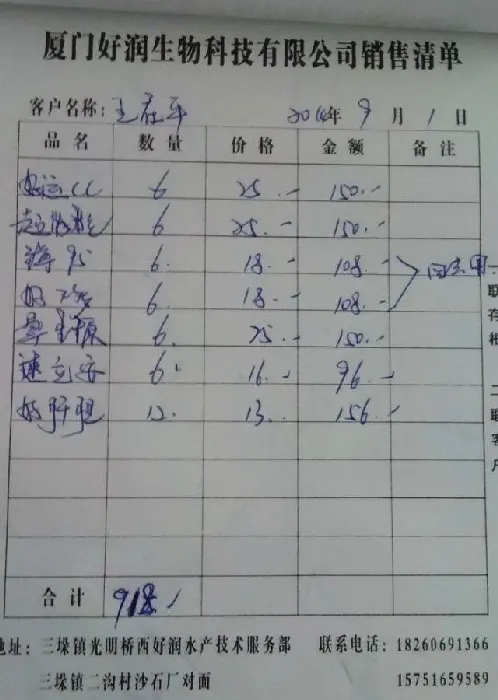 厦门好润生物科技有限公司销售清单
客户名称： 2014年 9 月 1 日
品名 数量 价格 金额 备注
6 25.- 150.-
6 25.- 150.-
6. 18.- 108.-
6. 18.- 108.-
6. 25.- 150.-
速立安 6. 16.- 96.-
好肝胆 12. 13.- 156.-
一联存根
二联客户
合计 918.-
地址：三垛镇光明桥西好润水产技术服务部 联系电话：18260691366
三垛镇二沟村沙石厂对面 15751659589